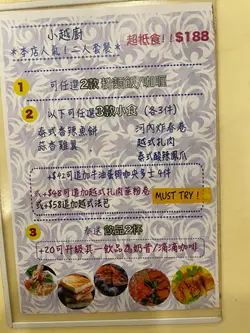 小越廚
*本店人氣！二人套餐*
超抵食!! $188
1 可任選2款粉麵飯/咖喱
2 以下可任選3款小食 (各3件)
泰式香辣魚餅 河內炸春卷
蒜香雞翼 越式扎肉
泰式酸辣鳳爪
+$42可追加牛油蛋撻咖央多士4件
或+$48可追加越式扎肉蒸粉卷
或+$58追加越式法包
MUST TRY!
3 奉送飲品2杯
+20可升級其一飲品為奶昔/滴滴咖啡